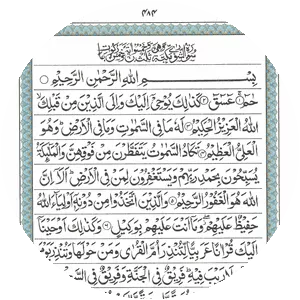 ٤٨٤
بِسْمِ اللهِ الرَّحْمٰنِ الرَّحِيْمِ
حٰمٓ عٓسٓقٓ كَذٰلِكَ يُوْحِيْٓ اِلَيْكَ وَاِلَى الَّذِيْنَ مِنْ قَبْلِكَ
اللهُ الْعَزِيْزُ الْحَكِيْمُ لَهٗ مَا فِى السَّمٰوٰتِ وَمَا فِى الْاَرْضِ وَهُوَ
الْعَلِيُّ الْعَظِيْمُ تَكَادُ السَّمٰوٰتُ يَتَفَطَّرْنَ مِنْ فَوْقِهِنَّ وَالْمَلٰٓئِكَةُ
يُسَبِّحُوْنَ بِحَمْدِ رَبِّهِمْ وَيَسْتَغْفِرُوْنَ لِمَنْ فِى الْاَرْضِ اَلَآ اِنَّ
اللهَ هُوَ الْغَفُوْرُ الرَّحِيْمُ وَالَّذِيْنَ اتَّخَذُوْا مِنْ دُوْنِهٖٓ اَوْلِيَآءَ اللهُ
حَفِيْظٌ عَلَيْهِمْ وَمَآ اَنْتَ عَلَيْهِمْ بِوَكِيْلٍ وَكَذٰلِكَ اَوْحَيْنَآ
اِلَيْكَ قُرْاٰنًا عَرَبِيًّا لِّتُنْذِرَ اُمَّ الْقُرٰى وَمَنْ حَوْلَهَا وَتُنْذِرَ يَوْمَ
لَا رَيْبَ فِيْهِ فَرِيْقٌ فِى الْجَنَّةِ وَفَرِيْقٌ فِى